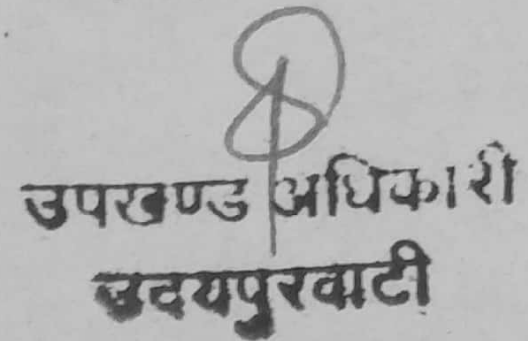 उपखण्ड अधिकारी
उदयपुरवाटी